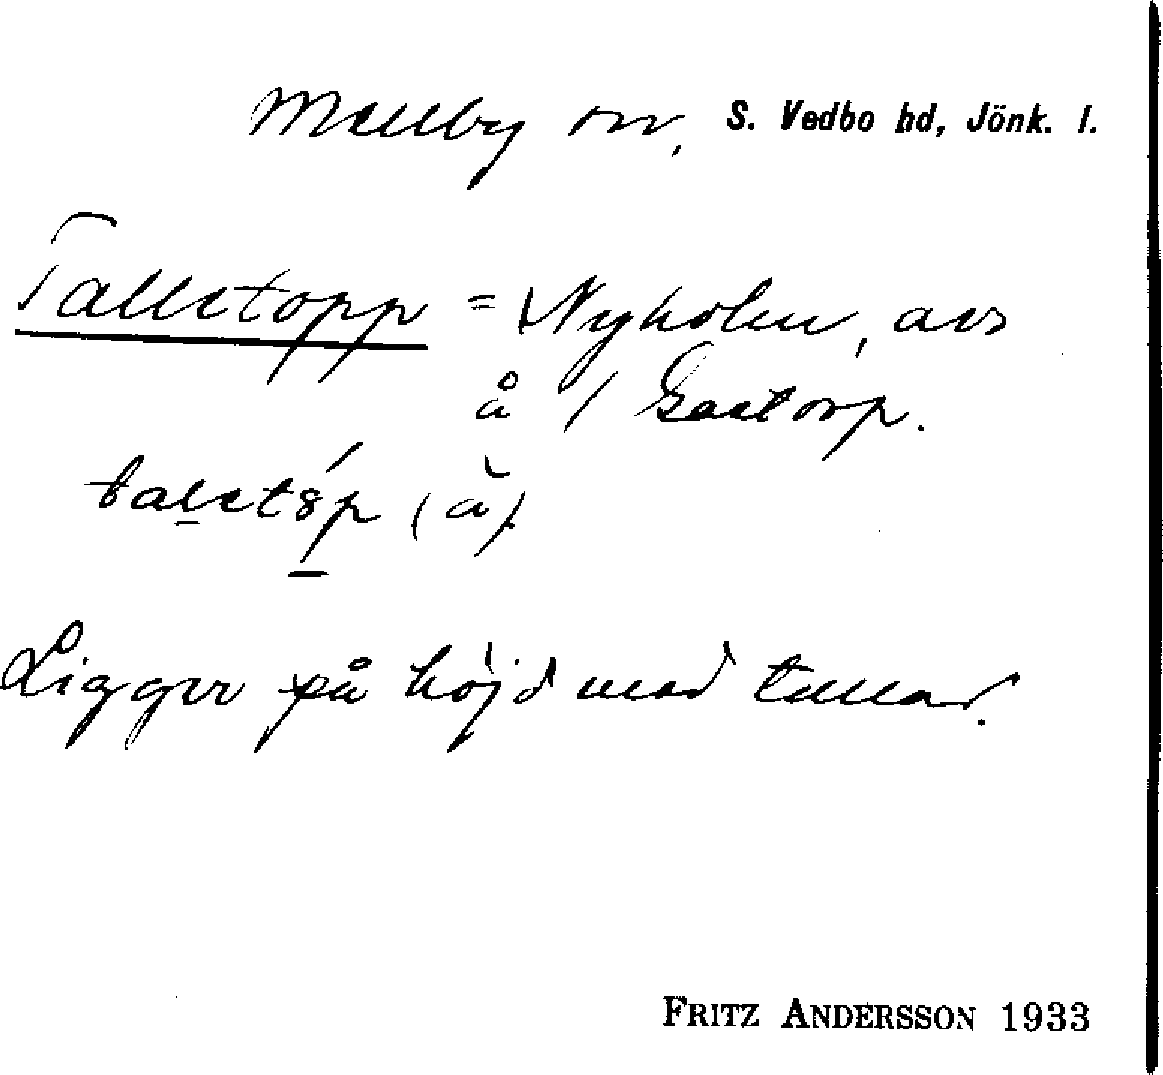 Mellby sn, S. Vedbo hd, Jönk. l.
Talletopp = Nyholm, avs
å 1 Gastorp.
taletȣp (à).
Ligger på höjd med tallar.
FRITZ ANDERSSON 1933